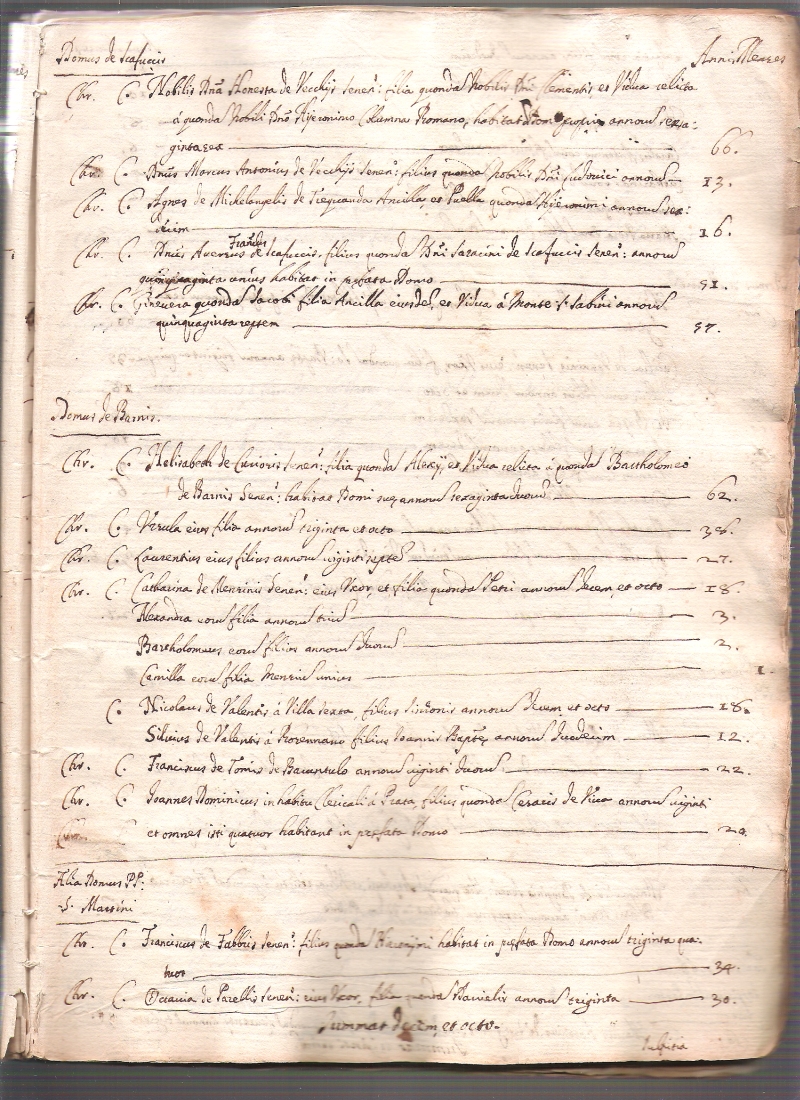 Domus de Scafuccis
Anni Menses
Chr. C. Nobilis Dña Honesta de Vecchijs Senen: filia quonda Nobilis Dñi Clementis, et Vidua relicta
á quonda Nobili Dño Hijeronimo Columna Romano, habitat Domi annoru sexa:
ginta sex 66.
Chr. C. Dñus Marcus Antonius de Vecchijs Senen: filius quonda Nobilis Dñi Ludovici annoru 13.
Chr. C. Agnes de Michelangelis de Trequanda Ancilla, et Puella quonda Hijeronimi annoru sex:
decim 16.
Chr. C. Dñus Aversus Francus de Scafuccis, filius quonda Dñi Saracini de Scafuccis Senen: annoru
quinquaginta unius habitat in pefata Domo 51.
Chr. C. Ginevera quonda Jacobi filia Ancilla eiusde, et Vidua á Monte S. Sabini annoru
quinquaginta septem 57.
Domus de Barnis.
Chr. C. Helisabeth de Senen: filia quonda Alexij, et Vidua relicta á quonda Bartholomeo
de Barnis Senen: habitat Domi suę annoru sexaginta duoru 62.
Chr. C. Ursula eius filia annoru triginta et octo 38.
Chr. C. Laurentius eius filius annoru viginti septe 27.
Chr. C. Catharina de Menrinis Senen: eius Uxor, et filia quonda Petri annoru decem, et octo 18.
Alexandra eoru filia annoru triu 3.
Bartholomeus eoru filius annoru duoru 2.
Camilla eoru filia Mensiu unius 1.
C. Nicolaus de Valentis á Villa sexta filius Simonis annoru decem et octo 18.
Silvius de Valentis á Rosennano filius Ioannis Baptę annoru duodecim 12.
Chr. C. Franciscus de Tomis de Bacuntulo annoru viginti duoru 22.
Chr. C. Ioannes Dominicus in habitu Clericali á Prata, filius quonda Cesaris de Vica annoru viginti
et omnes isti quatuor habitant in pefata Domo 20.
Alia Domus PP:
S. Martini
Chr. C. Franciscus de Fabbris Senen: filius quonda habitat in pefata Domo annoru triginta qua:
tuor 34.
Chr. C. Octavia de Pazellis Senen: eius Uxor, filia quonda Danielis annoru triginta 30.
Summat decem, et octo.